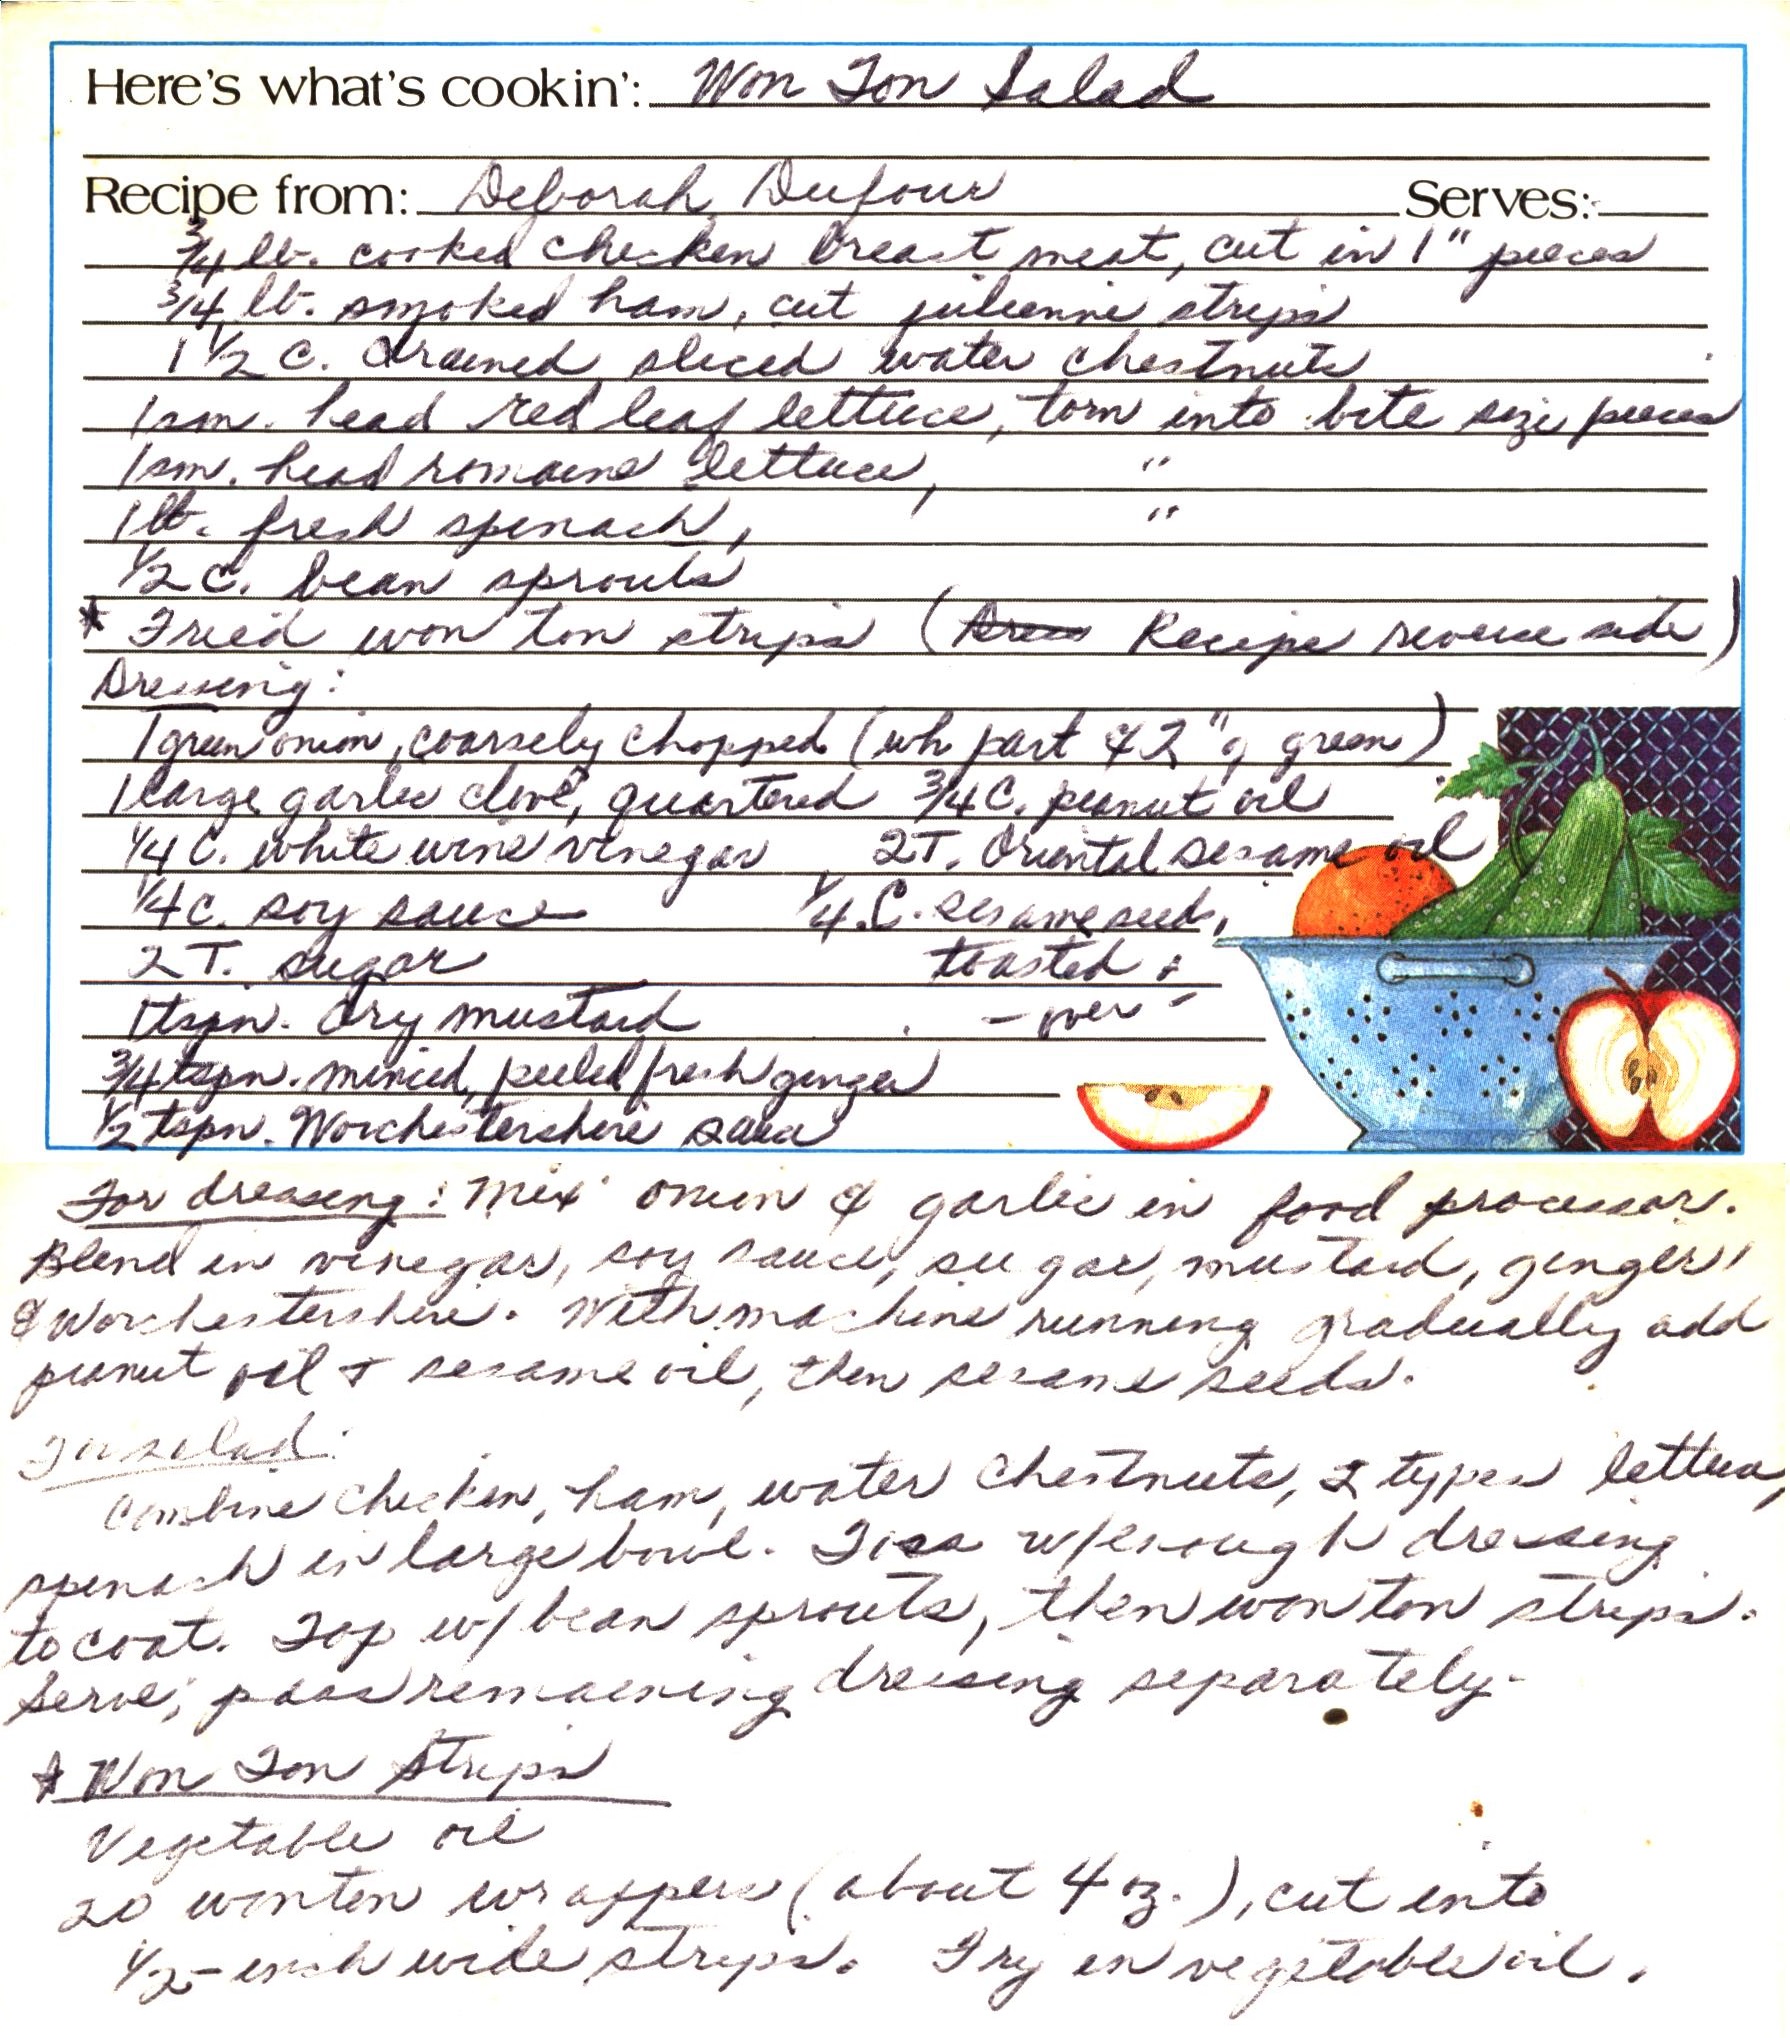 Here's what's cookin': Won Ton Salad
Recipe from: Deborah Dufour Serves:
3/4 lb. cooked chicken breast meat, cut in 1" pieces
3/4 lb. smoked ham, cut julienne strips
1 1/2 C. drained sliced water chestnuts
1 sm. head red leaf lettuce, torn into bite size pieces
1 sm. head romaine lettuce, "
1 lb. fresh spinach, "
1/2 C. bean sprouts
* Fried won ton strips ( Recipe reverse side)
Dressing:
1 green onion, coarsely chopped (wh part & 2" of green)
1 large garlic clove, quartered 3/4 C. peanut oil
1/4 C. white wine vinegar 2 T. Oriental sesame oil
1/4 C. soy sauce 1/4 C. sesame seeds,
2 T. sugar toasted
1 tspn. dry mustard - over -
3/4 tspn. minced, peeled fresh ginger
1/2 tspn. Worchestershire sauce
For dressing: Mix onion & garlic in food processor.
Blend in vinegar, soy sauce, sugar, mustard, ginger,
& Worchestershire. With machine running gradually add
peanut oil & sesame oil, then sesame seeds.
For salad:
Combine chicken, ham, water chestnuts, 2 types lettuce,
spinach in large bowl. Toss w/enough dressing
to coat. Top w/ bean sprouts, then won ton strips.
Serve; pass remaining dressing separately.
* Won Ton Strips
Vegetable oil
20 wonton wrappers (about 4 oz.), cut into
1/2-inch wide strips. Fry in vegetable oil.